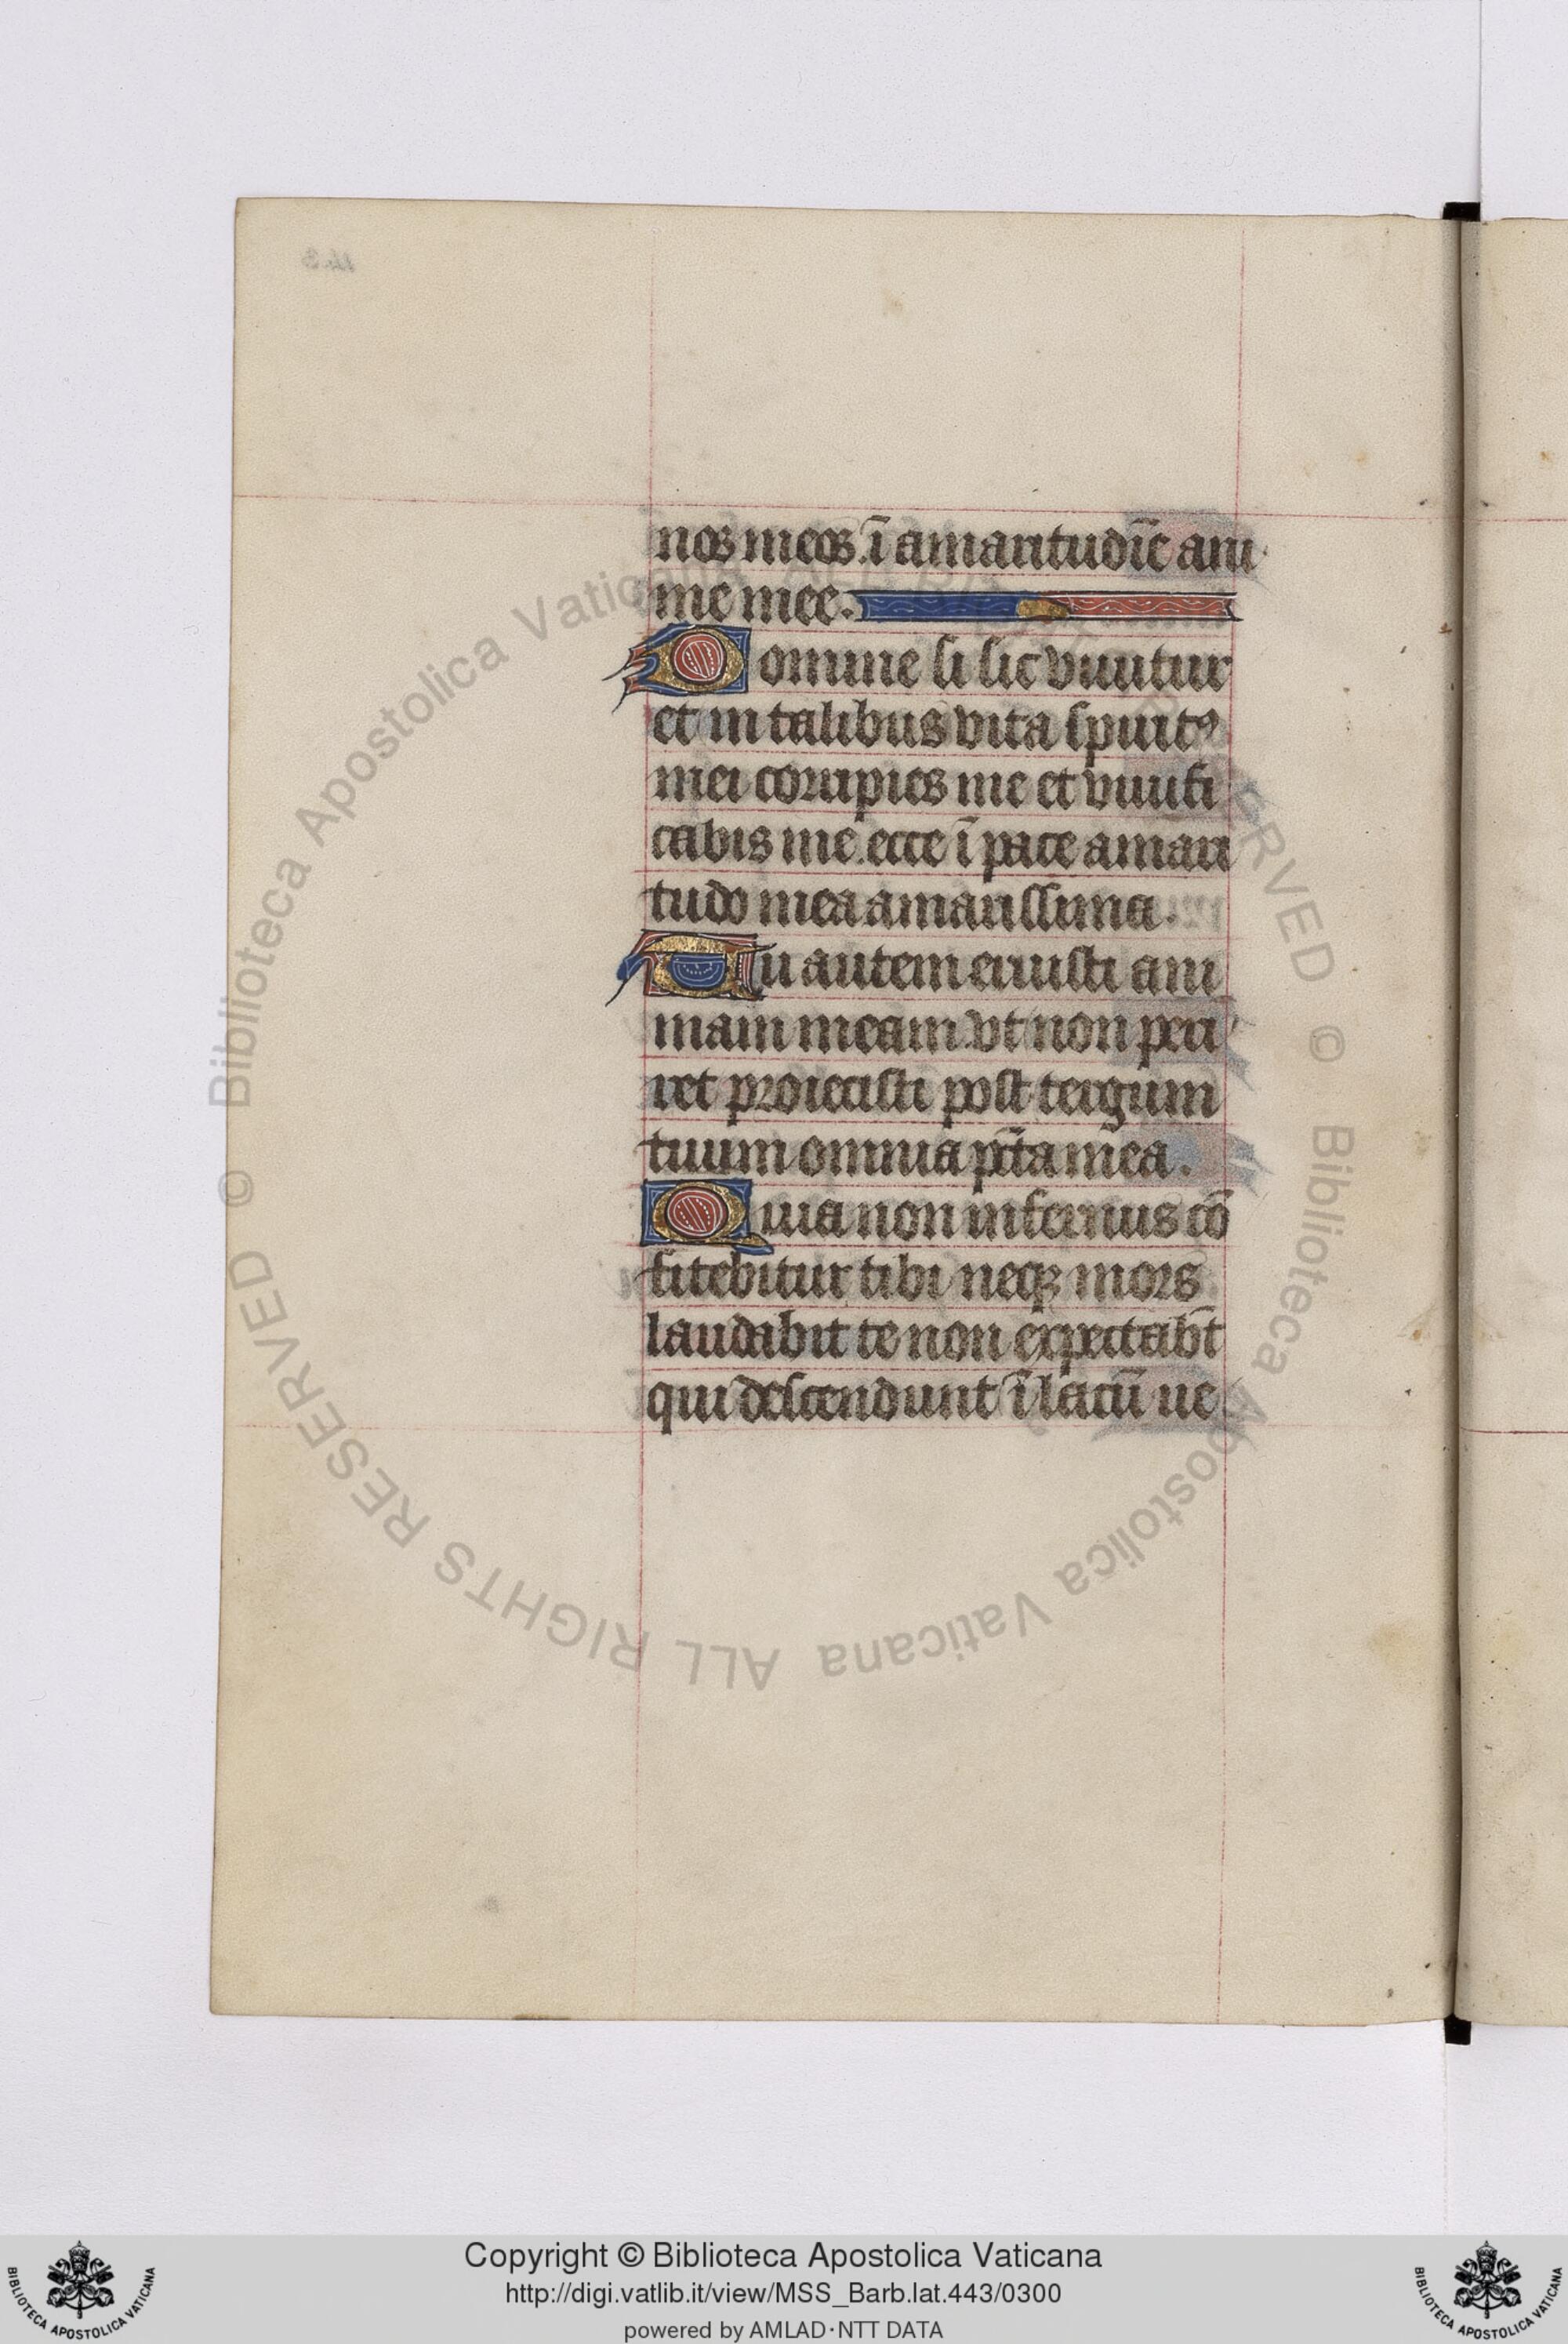 nos meos. ī amaritudīe ani
me mee.
Domine si sic viuitur
et in talibus vita spirit⁹
mei corripies me et viuifi
cabis me. ecce ī pace amari
tudo mea amarissima.
Tu autem eruisti ani
mam meam. vt non peri
ret proiecisti post tergum
tuum omnia pc̄ta mea.
Quia non infernus cō
fitebitur tibi neqꝫ mors
laudabit te non expectab̄t
qui descendunt ī lacū ue
© Biblioteca Apostolica Vaticana ALL RIGHTS RESERVED
© Biblioteca Apostolica Vaticana ALL RIGHTS RESERVED
Copyright © Biblioteca Apostolica Vaticana
http://digi.vatlib.it/view/MSS_Barb.lat.443/0300
powered by AMLAD·NTT DATA
BIBLIOTECA APOSTOLICA VATICANA
BIBLIOTECA APOSTOLICA VATICANA